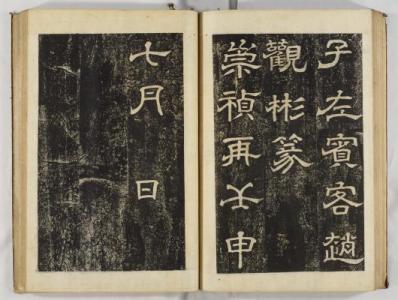 子左賓客趙
觀彬篆
崇禎再壬申
七月 日